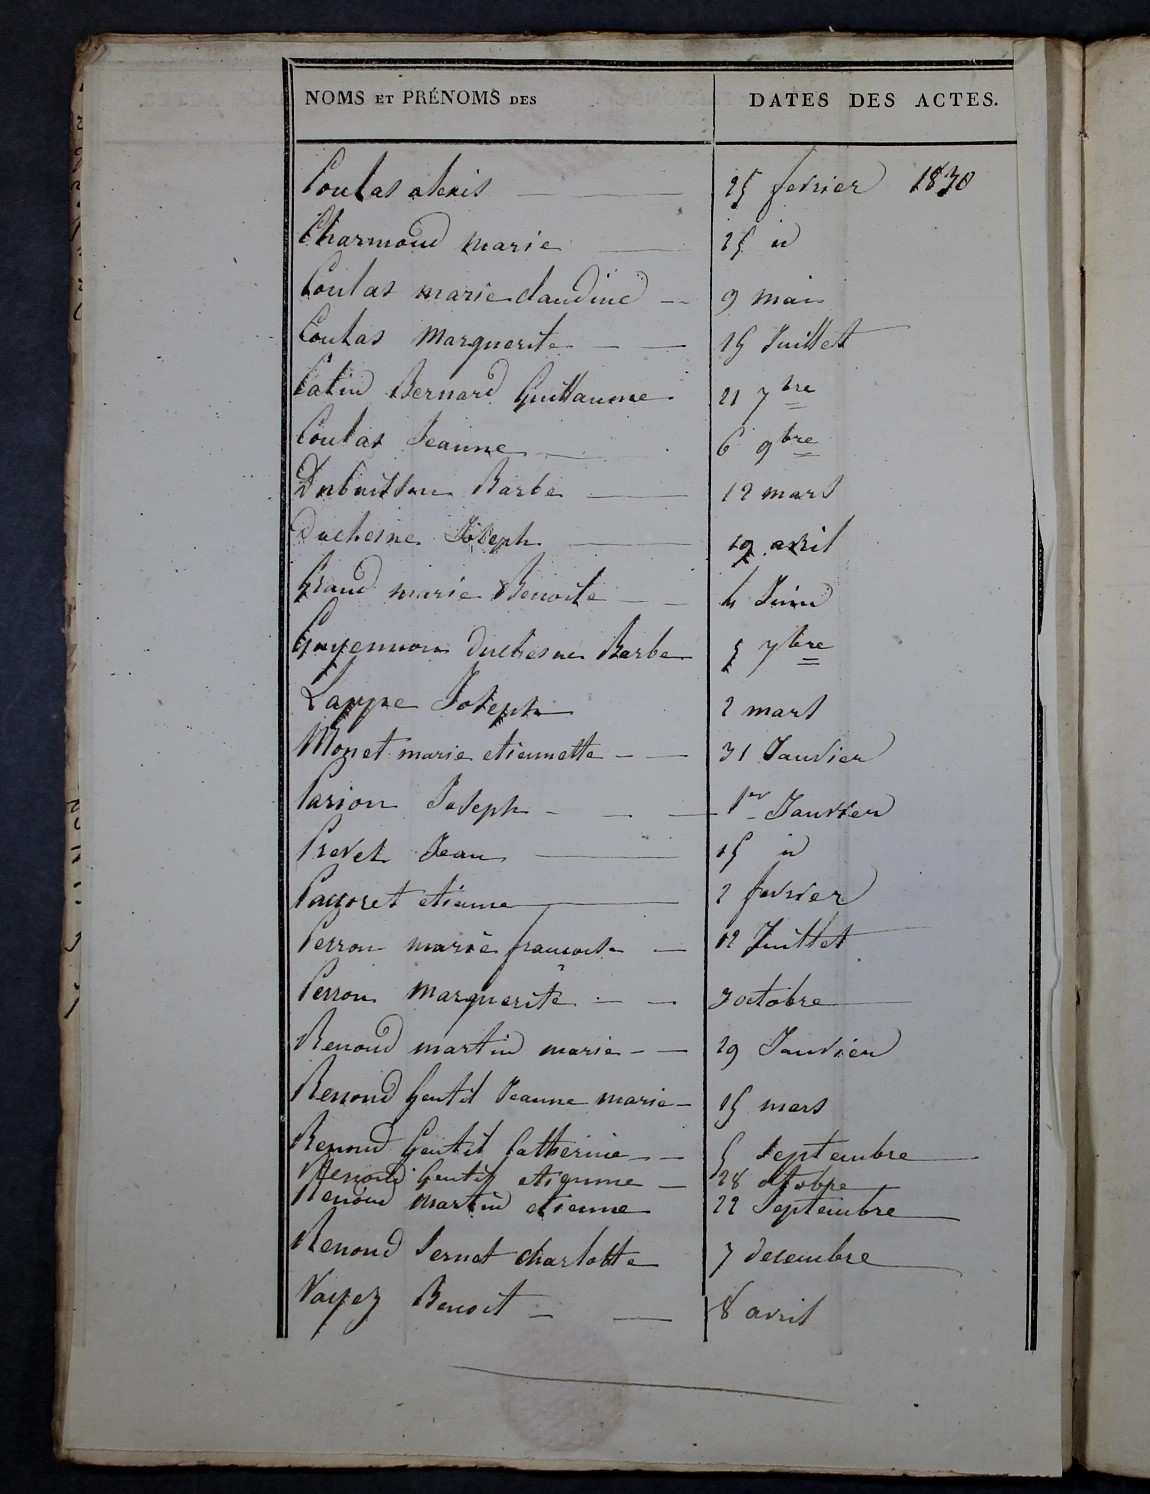 NOMS ET PRÉNOMS DES DATES DES ACTES.
Coulas alexis 25 fevrier 1830
Charmoud marie 25 id
Coulas marie claudine 9 mai
Coulas Marguerite 15 Juillet
Catin Bernard Guillaume 21 7bre
Coulas Jeanne 6 9bre
Dubuisson Barbe 12 mars
Duchesne Joseph 19 avril
Graud marie Benoite 4 Juin
Guyennon duchesne Barbe 5 7bre
Lappe Joseph 2 mars
Monet marie etiennette 31 Janvier
Parion Joseph 1er Janvier
Prevet Jean 15 id
etienne 2 fevrier
Perron marie francoise 12 Juillet
Perron Marguerite 7 octobre
Renoud martin marie 29 Janvier
Renoud Gentil Jeanne marie 15 mars
Renoud Gentil Catherine 5 Septembre
Renoud Gentil etienne 28 octobre
Renoud Martin etienne 22 Septembre
Renoud Pernet charlotte 7 decembre
Benoit 8 avril